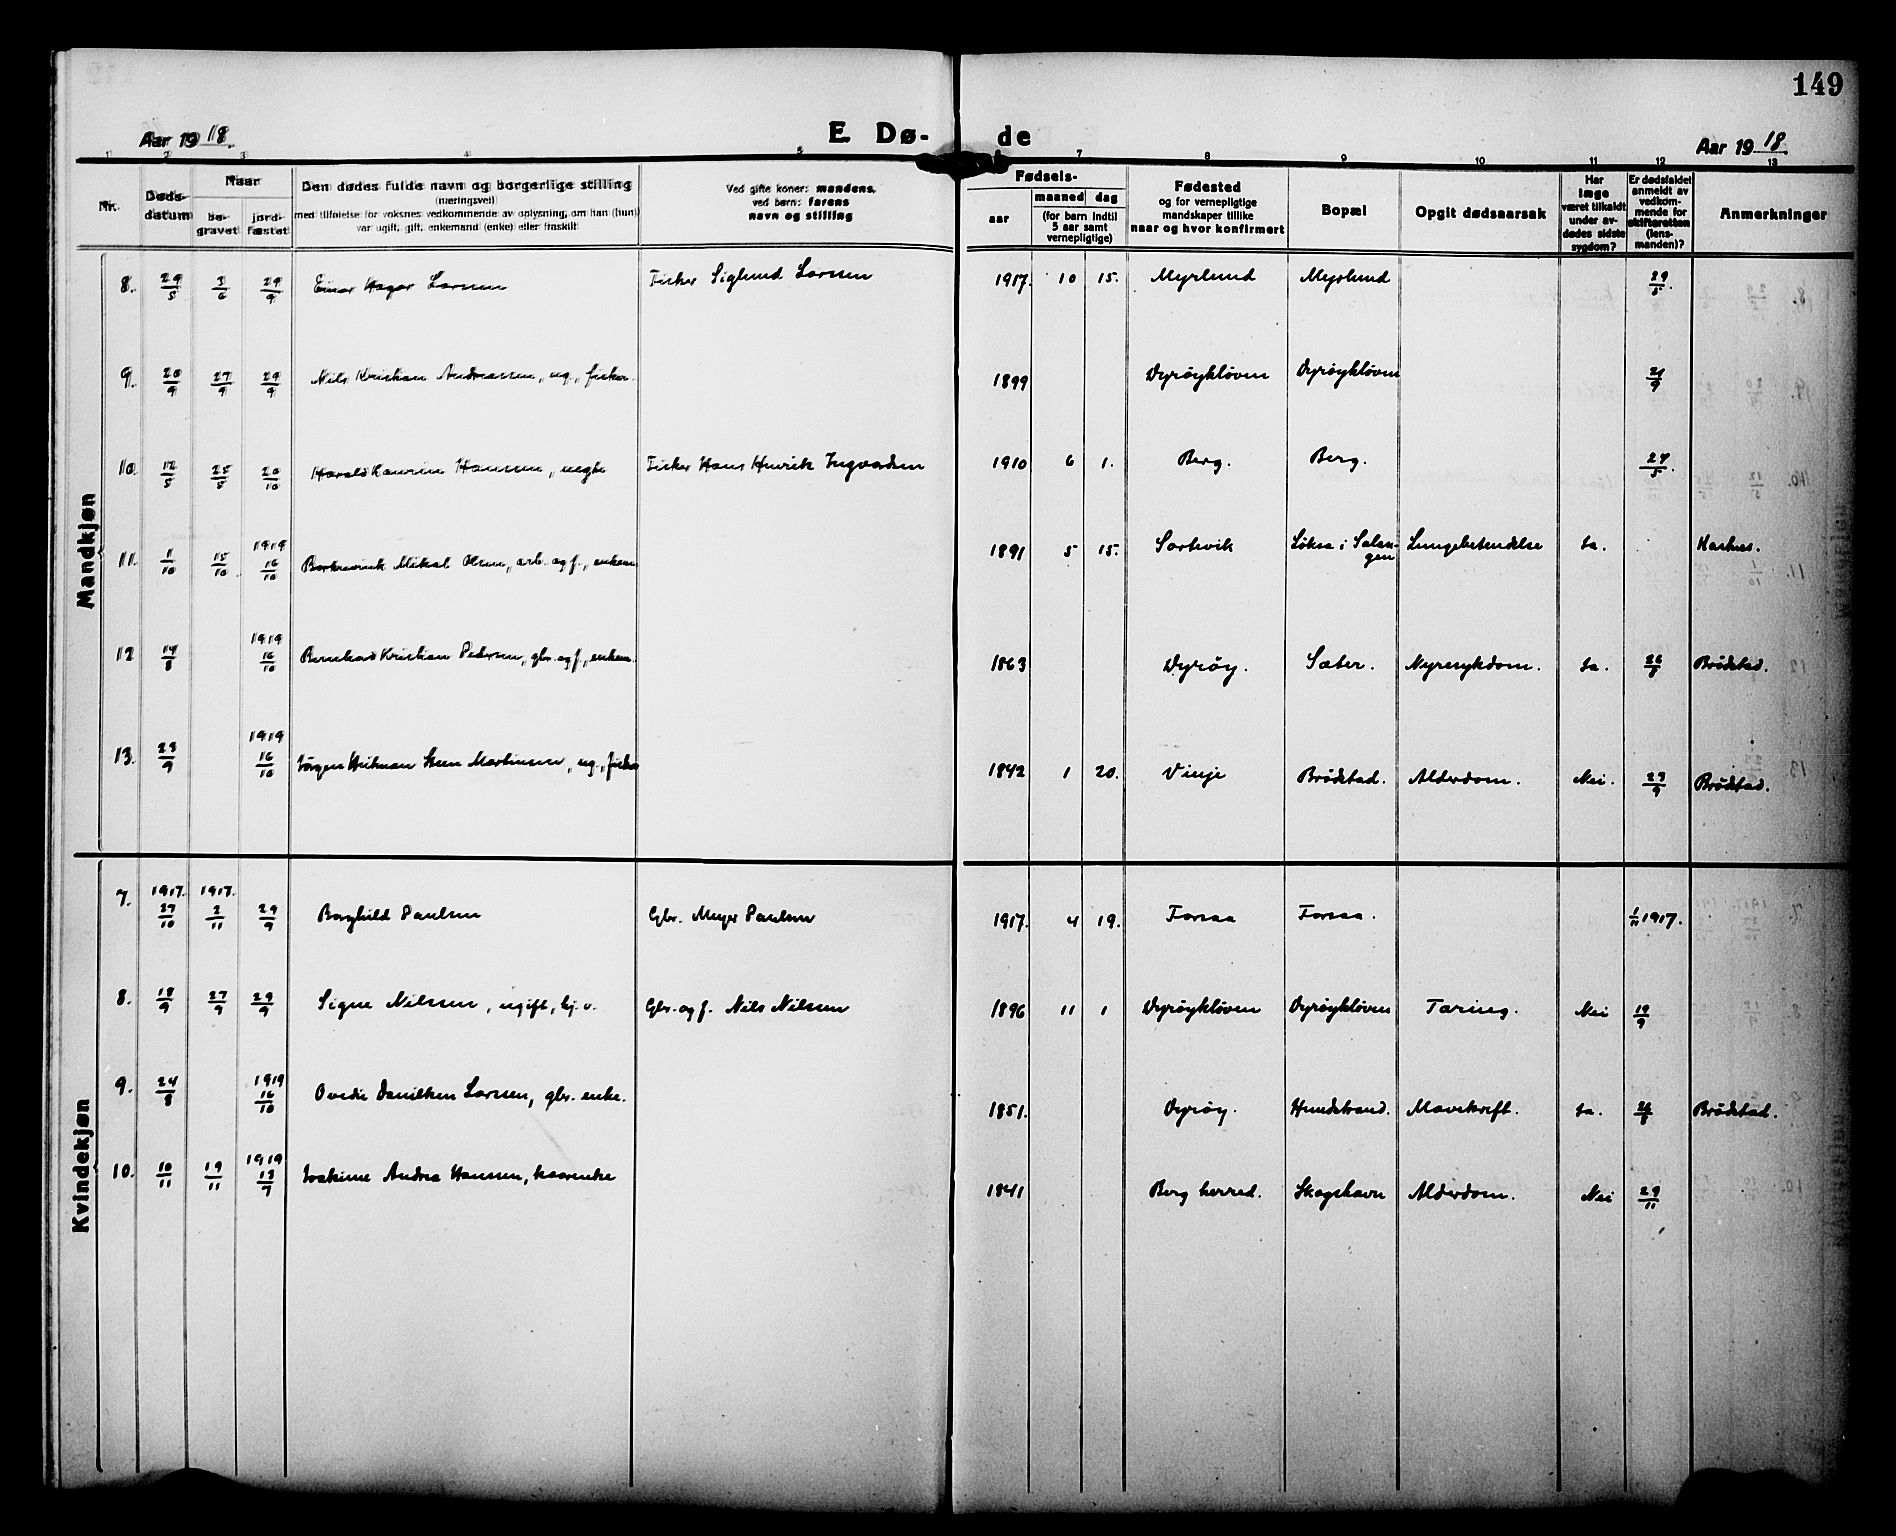 149
Aar 1918.
E. Dø-
de
Aar 1918.
1 2 3 4 5 7 8 9 10 11 12 13
Nr.
Døds-
datum
Naar
be-
gravet
jord-
fæstet
Den dødes fulde navn og borgerlige stilling
(næringsvei)
med tilføielse for voksnes vedkommende av oplysning, om han (hun)
var ugift, gift, enkemand (enke) eller fraskilt
Ved gifte koner: mandens,
ved børn: farens
navn og stilling
Fødsels-
aar
maaned dag
(for barn indtil
5 aar samt
vernepligtige)
Fødested
og for vernepligtige
mandskaper tillike
naar og hvor konfirmert
Bopæl
Opgit dødsaarsak
Har
læge
været tilkaldt
under av-
dødes sidste
sygdom?
Er dødsfaldet
anmeldt av
vedkom-
mende for
skifteretten
(lens-
manden)?
Anmerkninger
Mandkjøn
8. 29/5 3/6 29/9 Einar Hagar Larsen Fisker Siglund Larsen 1917. 10 15. Myrlund Myrlund 29/5.
9. 20/9 27/9 29/9 Nils Kristian Andreassen, ug., fisker. 1899 Dyrøykløven Dyrøykløven 21/9
10. 12/5 25/5 20/10 Harald Hansen, uegte Fisker Hans Henrik Ingvaldsen 1910 6 1. Berg. Berg. 24/5.
1919
11. 1/10 15/10 16/10 Mikal Olsen, arb. og f., enkem. 1891 5 15. Sortevik Løksa i Salan-
gen Lungebetendelse Ja.
1919
12 14/8 16/10 Bernhard Kristian Pedersen, gbr. og f., enkem. 1863 Dyrøy. Sæter. Nyresykdom. Ja. 26/8 Brøstad.
1919
13. 23/9 16/10 Jørgen Heitman Steen Martinsen, ug., fisker 1842 1 20. Vinje Brøstad. Alderdom. Nei. 23/9 Brøstad.
Kvindekjøn
1917. 1917.
7. 27/10 2/11 29/9 Borghild Paulsen Gbr. Meyer Paulsen 1917. 4 19. Forsaa Forsaa. 1/11 1917.
8. 18/9 27/9 29/9 Signe Nilssen, ugift, hj. v. Gbr. og f. Nils Nilssen 1896 11 1 Dyrøykløven Dyrøykløven Tæring. Nei 19/9
1919
9. 24/8 16/10 Ovedie Danilsen Larsen, gbr. enke. 1851. Dyrøy. Hundstrand. Mavekræft. Ja. 26/8 Brøstad.
1919
10. 10/11 19/11 13/7 Joakime Andrea Hansen, kaarenke 1841 Berg herred. Skogshavn Alderdom. Nei 29/11